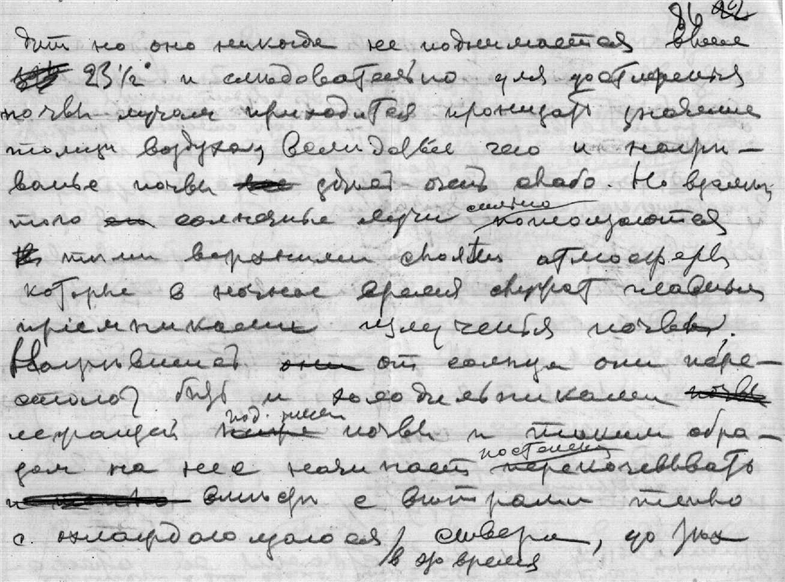 86 22
дит но оно никогда не поднимается выше
23 1/2° и следовательно для достижения
почвы лучам приходится проницать
толщи воздуха, вследствие чего и нагри-
ванье почвы будет очень слабо. Но
того солнечные лучи сильно поглощаются
теми верхними слоями атмосферы
которые в ночное время служат главным
приемниками излучения почвы.
Нагревшись от солнца они пере-
стают быть и холодильниками
лежащей под ними почвы и таким обра-
зом на нее начинает постепенно
вместе с ветрами тепло
с охлаждающагося севера, до
в это время